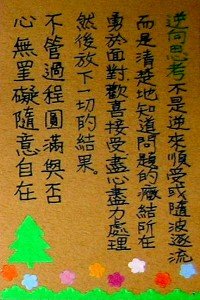 逆向思考不是逆來順受或隨波逐流
而是清楚地知道問題的癥結所在
勇於面對歡喜接受盡心盡力處理
然後放下一切的結果。
不管過程圓滿與否
心無罣礙隨意自在